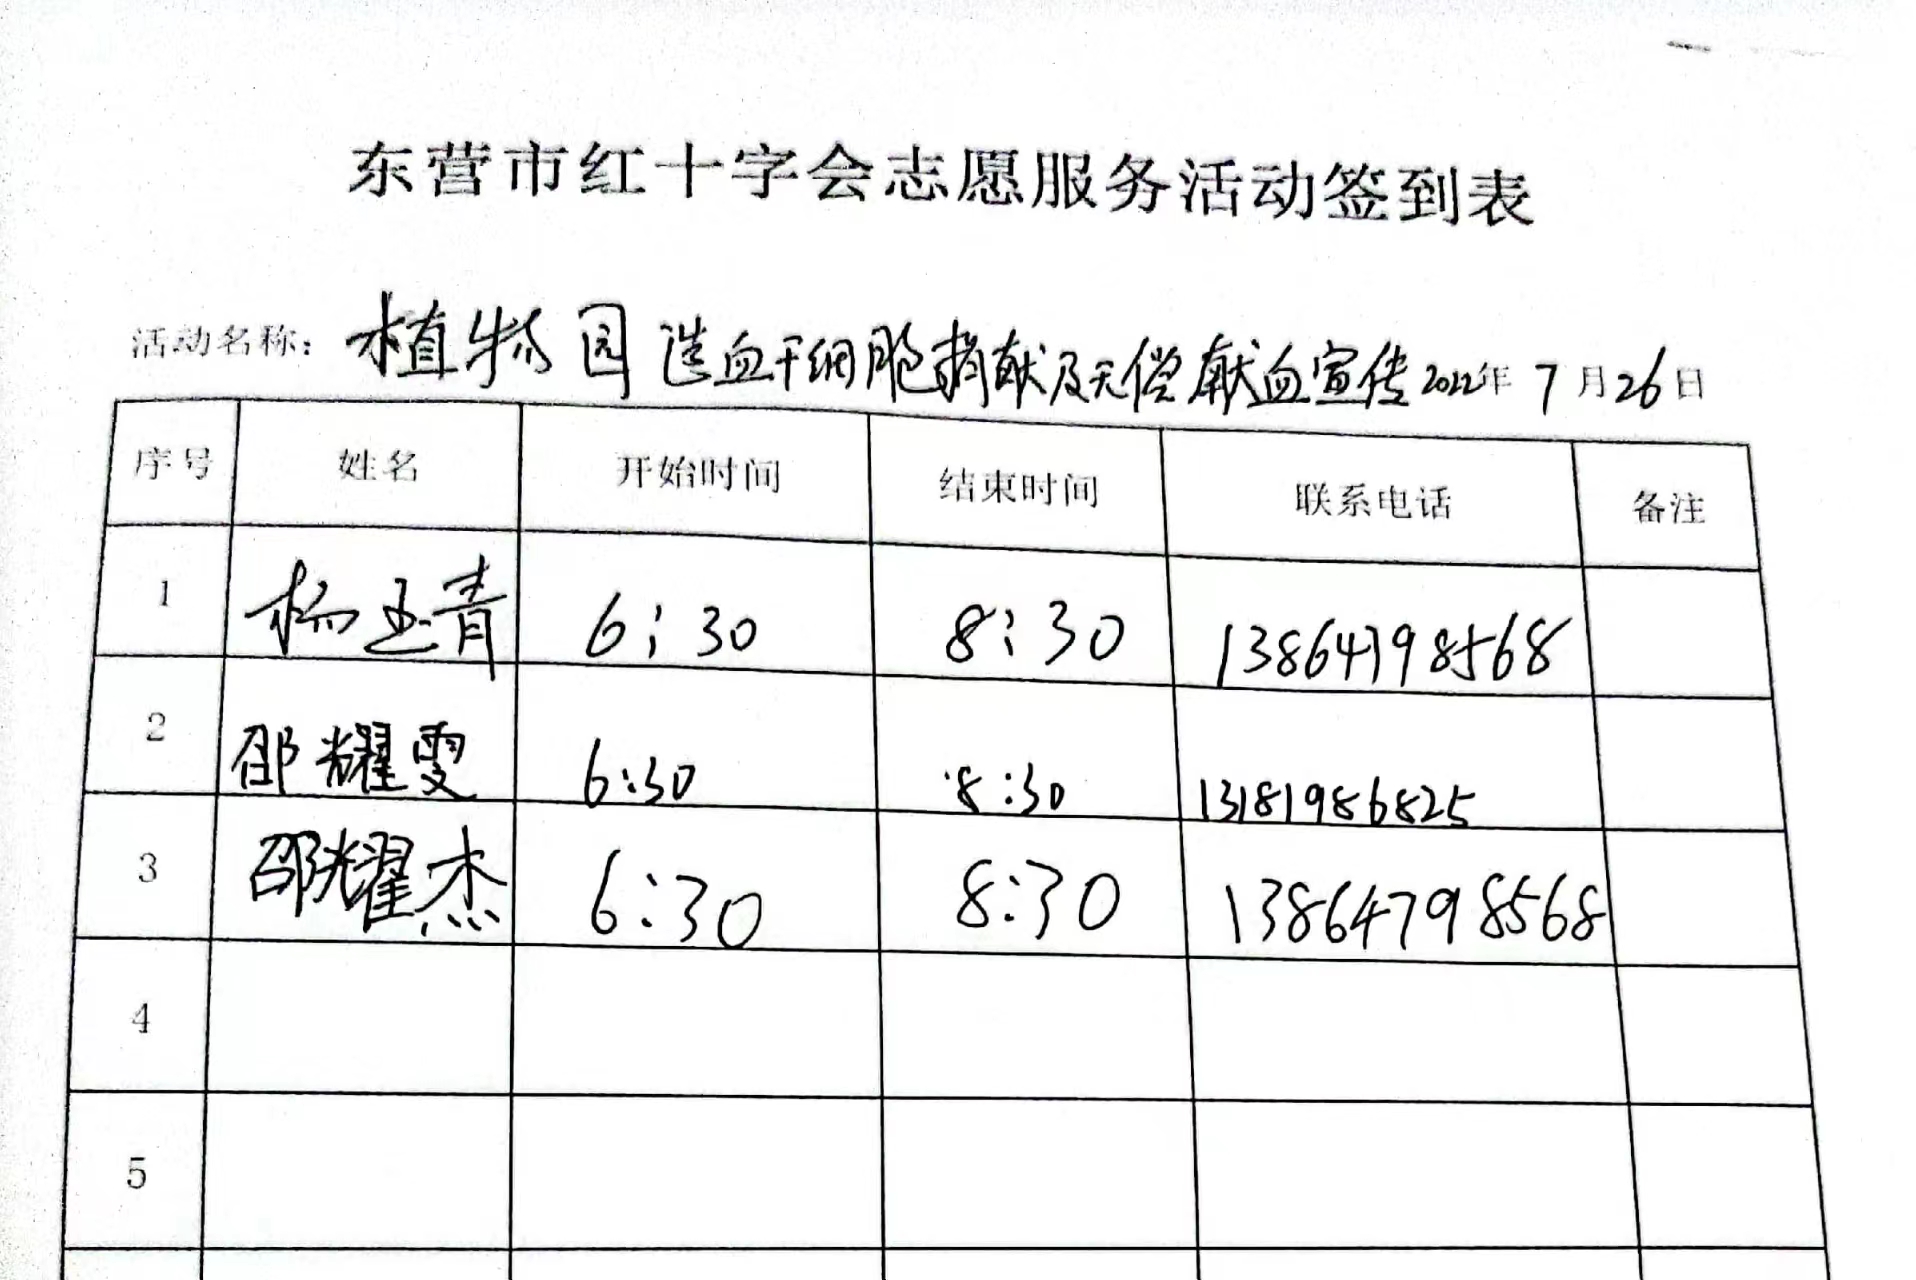 东营市红十字会志愿服务活动签到表
活动名称：植物园造血干细胞捐献及无偿献血宣传2022年7月26日
序号 姓名 开始时间 结束时间 联系电话 备注
1 杨玉青 6:30 8:30 13864798568
2 邵耀雯 6:30 8:30 13181986825
3 邵耀杰 6:30 8:30 13864798568
4
5